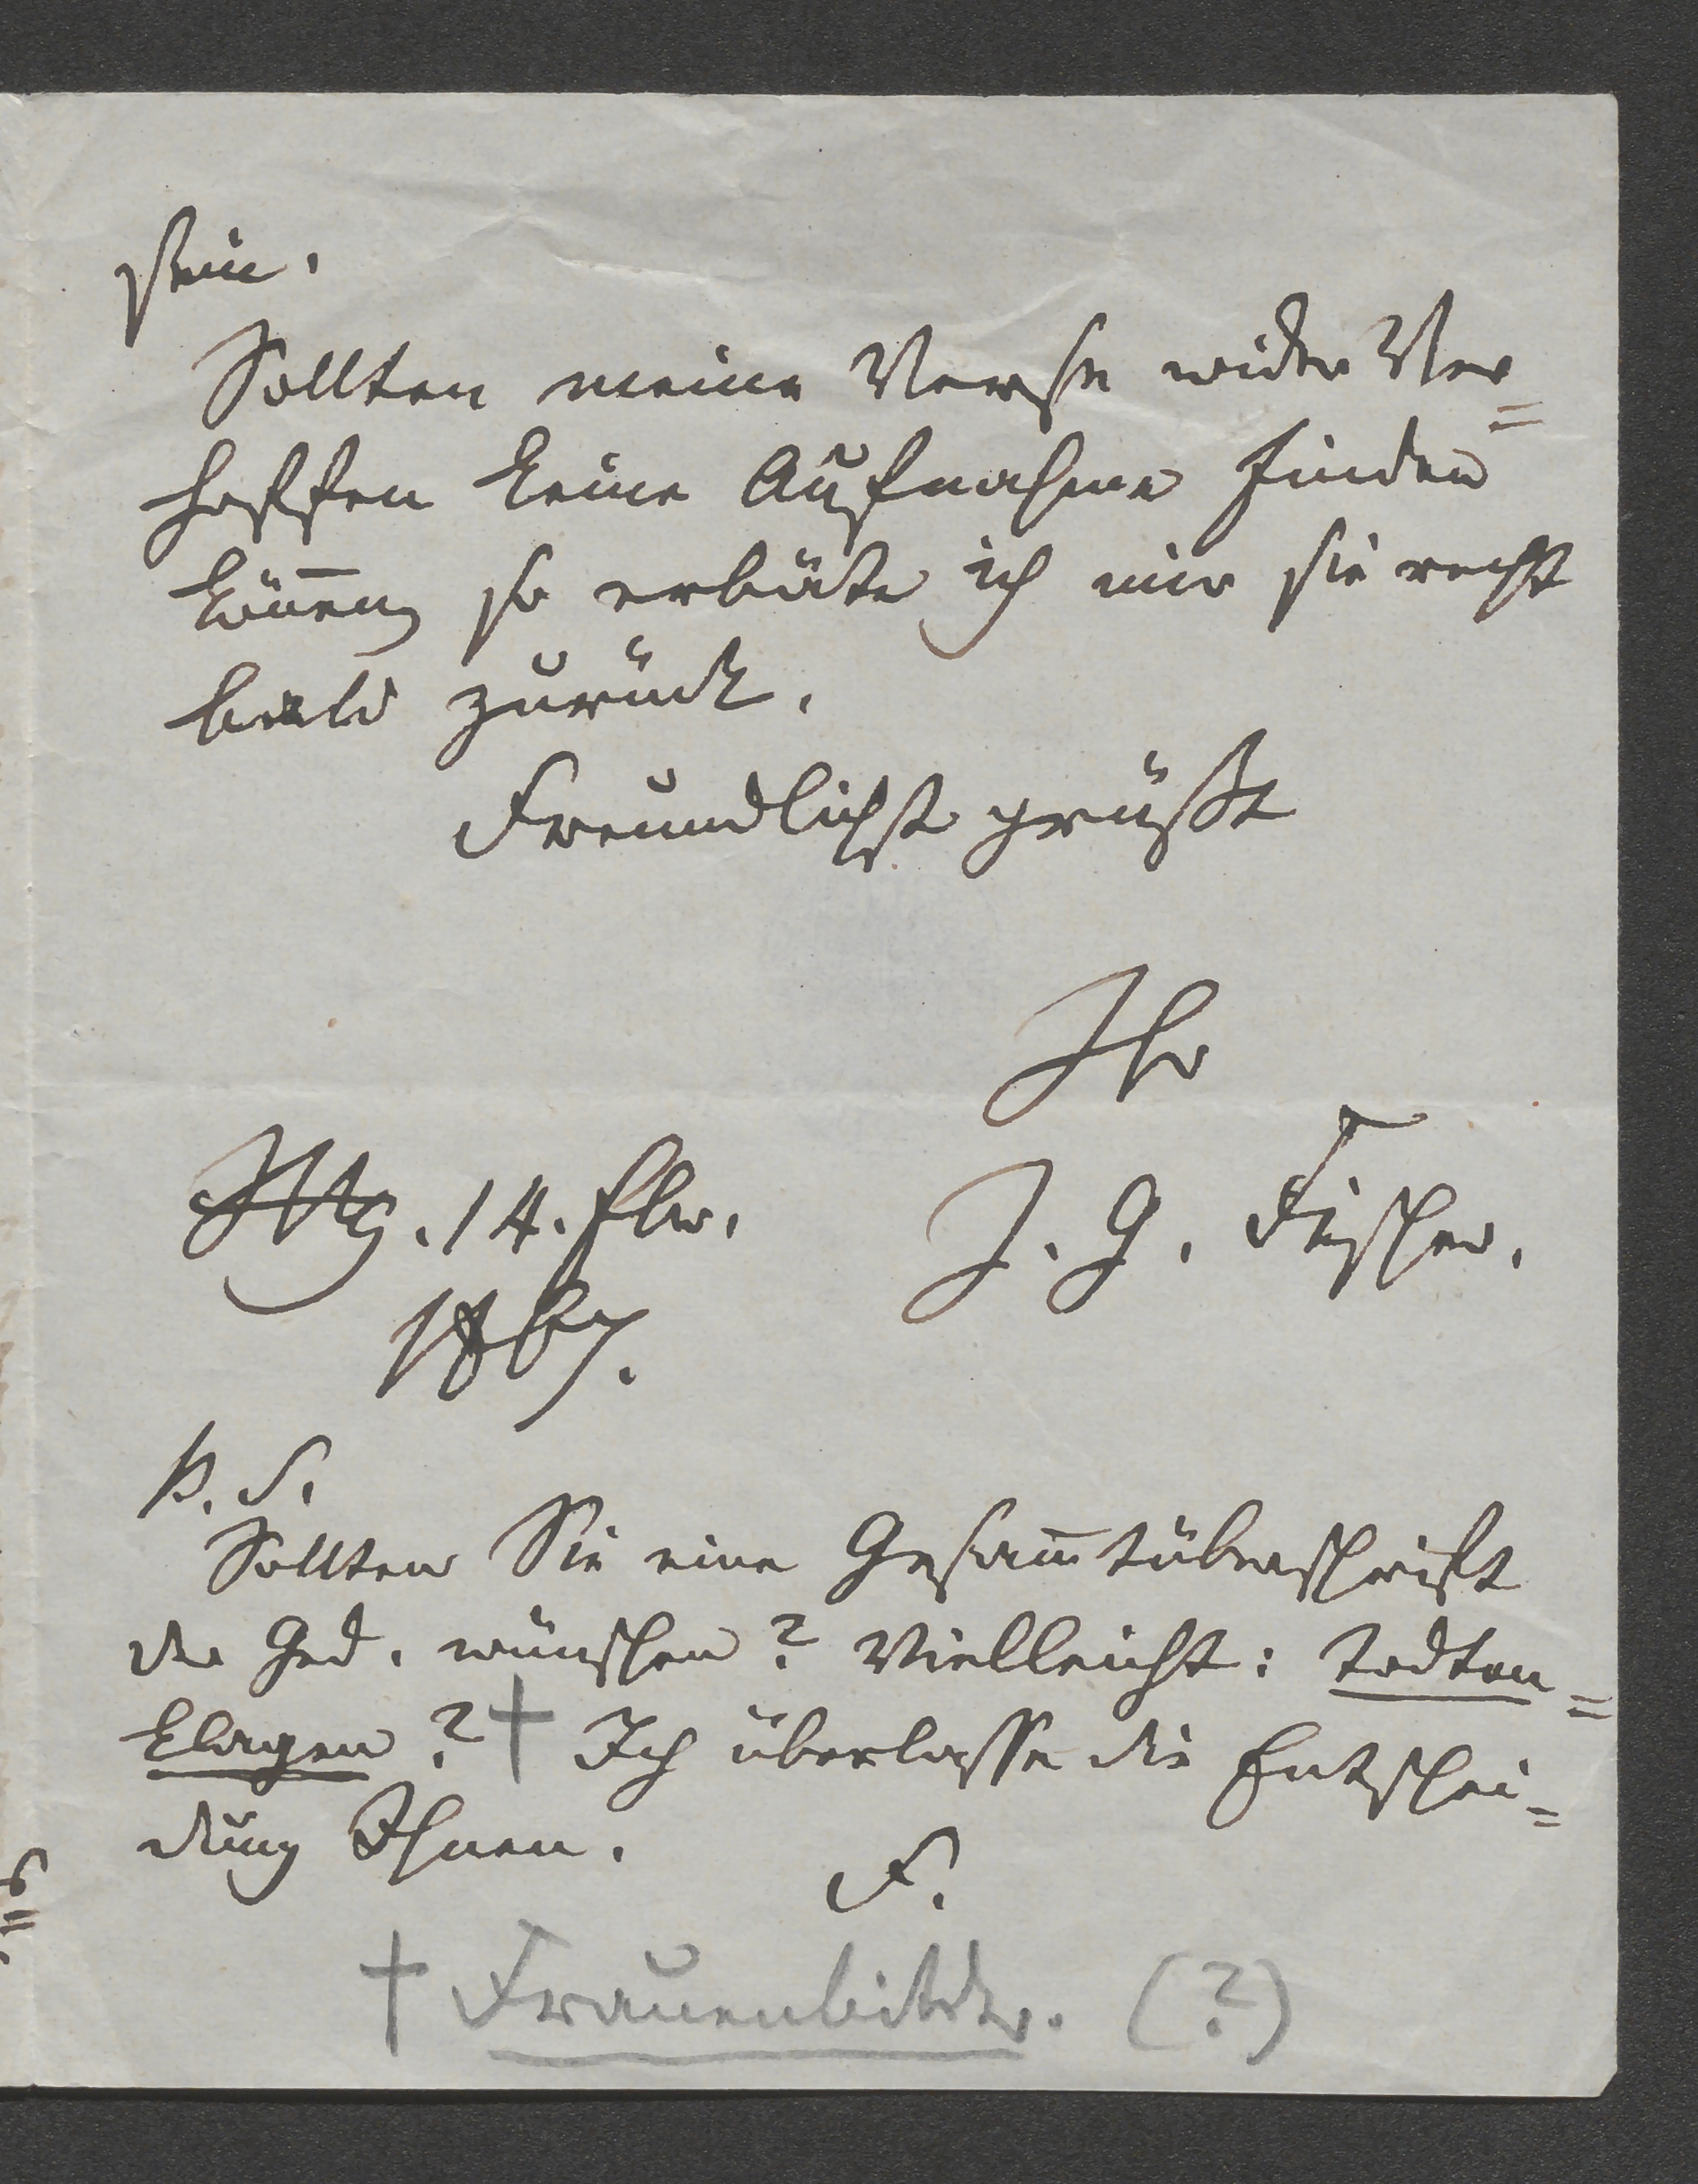 sein.
Sollten meine Verse wider Ver=
hoffen keine Aufnahme finden
kön̄en, so erbäte ich mir sie recht
bald zurück.
Freundlichst grüßt
Ihr
Sttg. 14. Febr.
J. G. Fischer.
1867.
P. S.
Sollten Sie eine Gesam̄tüberschrift
der Ged. wünschen? Vielleicht: Todten=
klagen? † Ich überlasse die Entschei=
dung Ihnen.
F.
† Frauenbilder. (?)